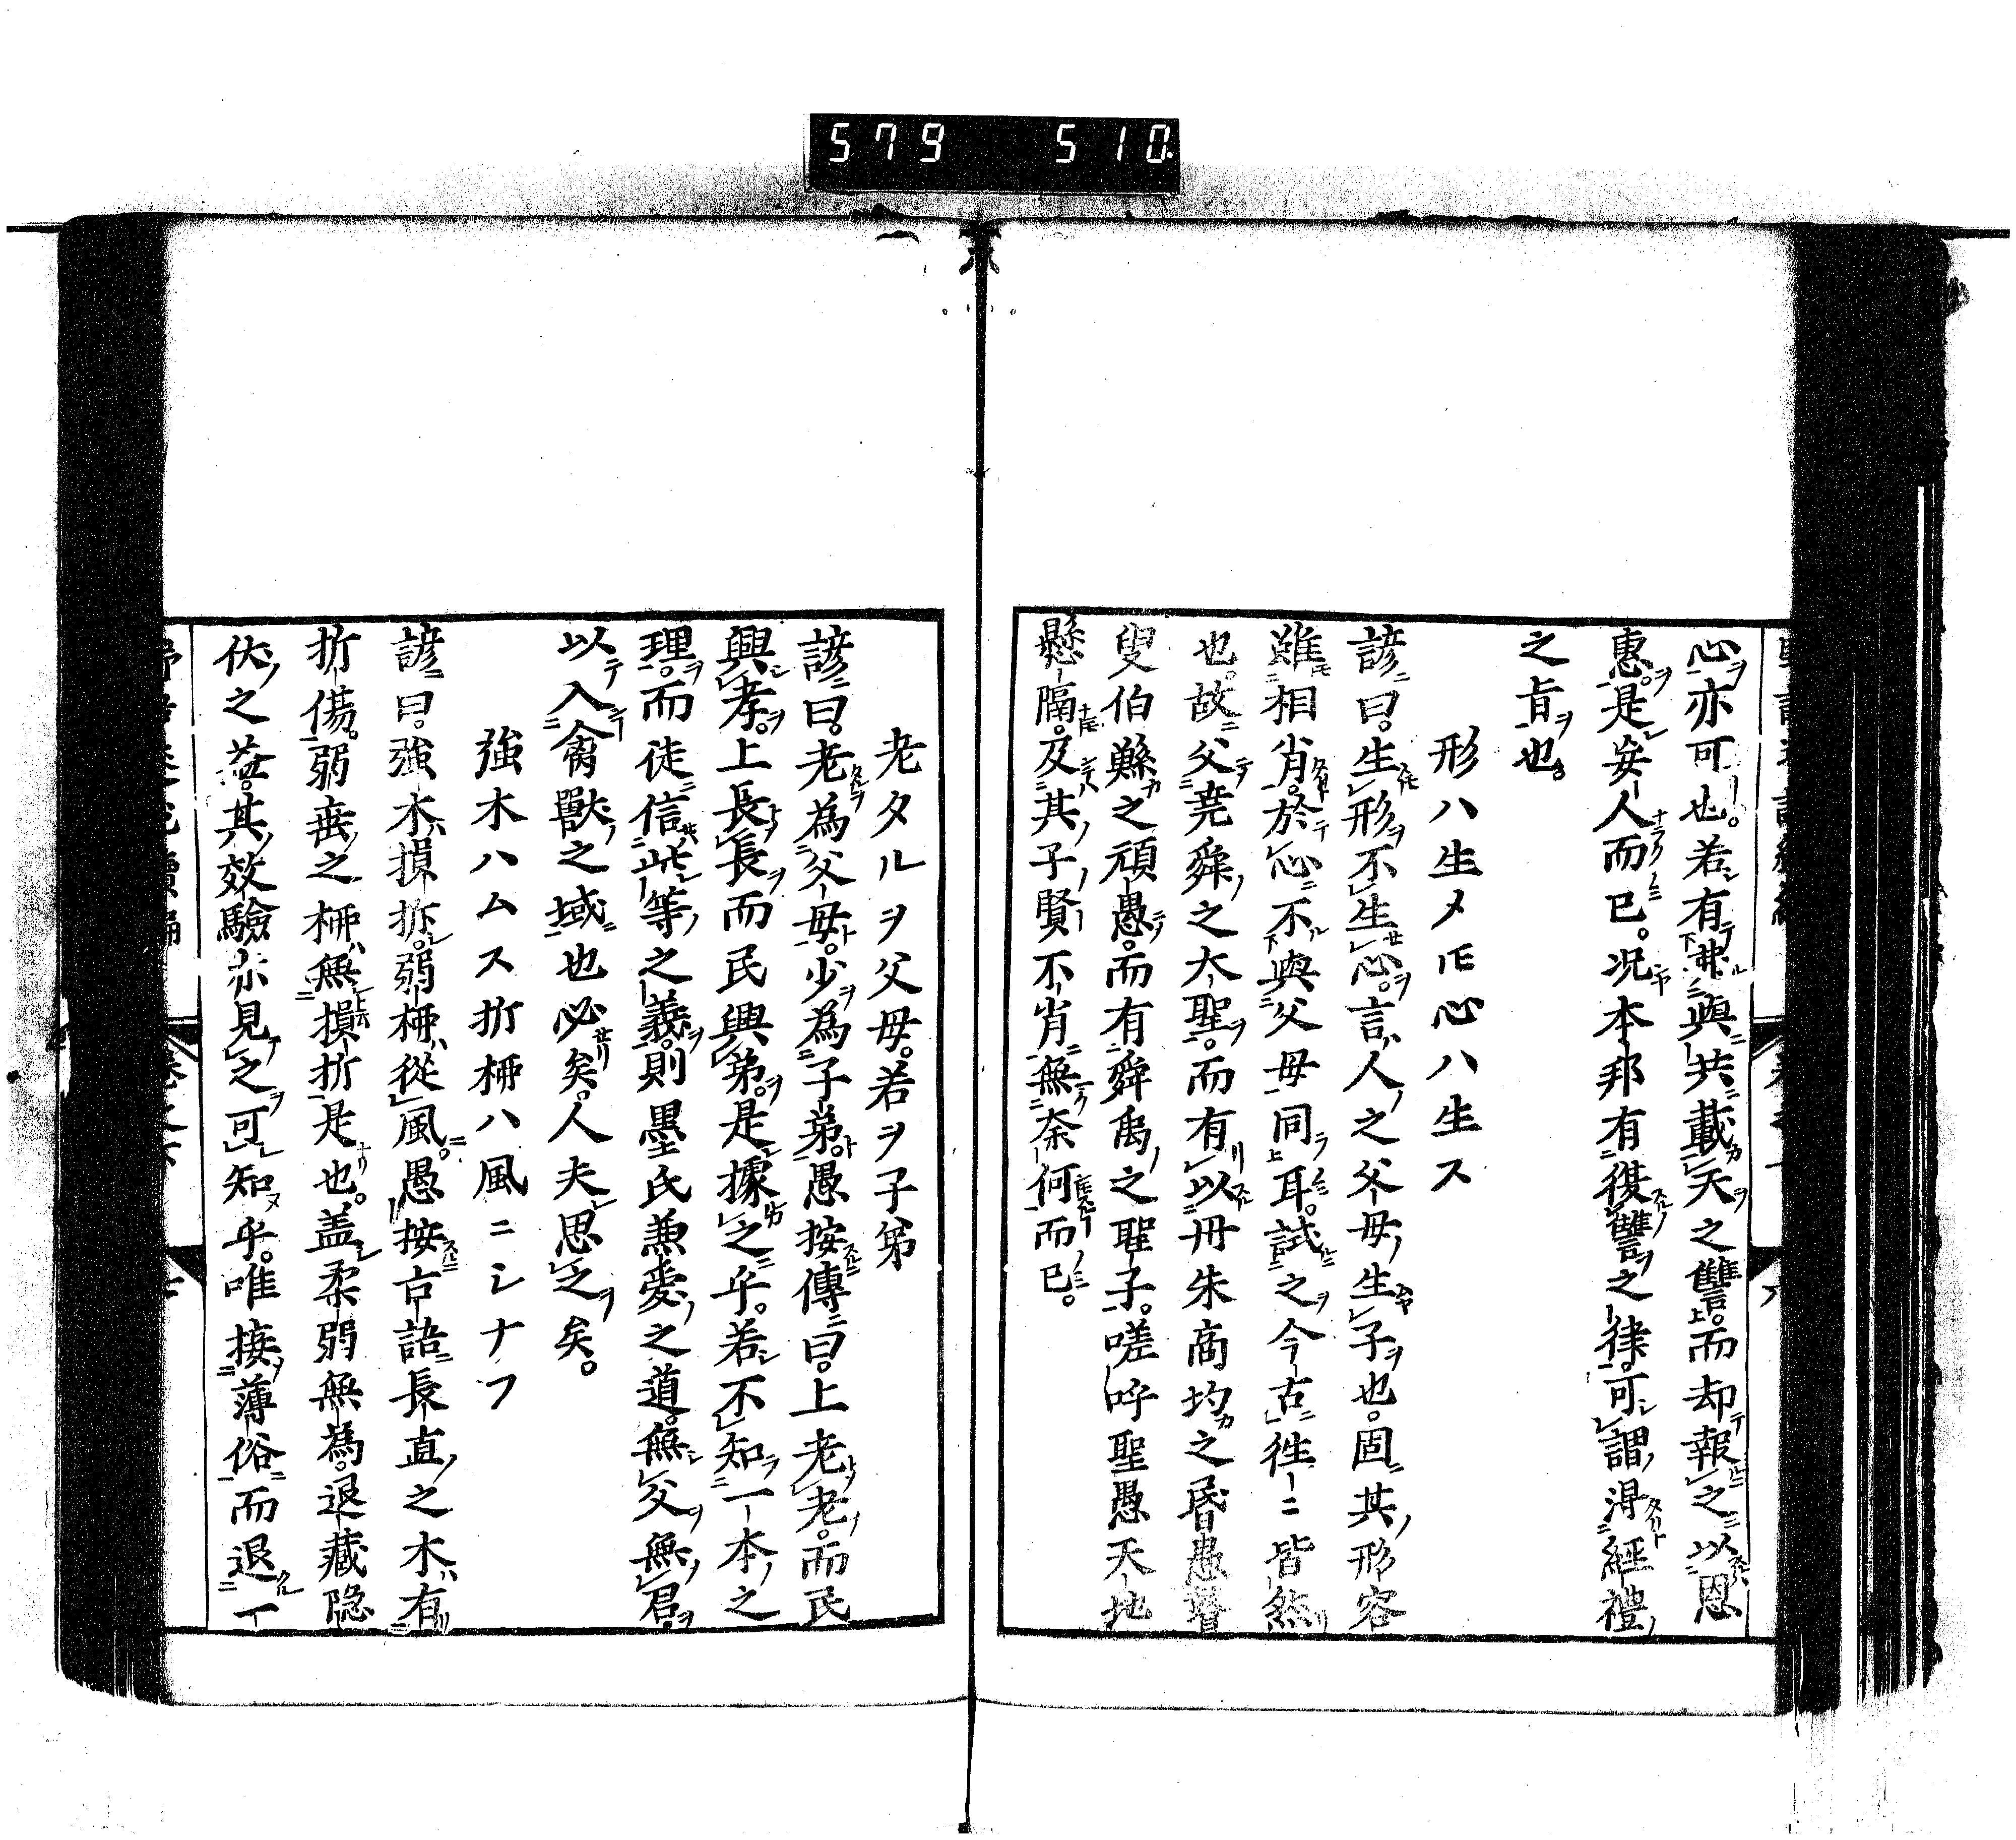 579 510
心亦可也。若有弗與共載天之讐。而却報之以恩
惠。是安人而已。况本邦有復讐之律。可謂得經禮
之旨也。
形ハ生メ𪜈心ハ生ス
諺曰。生形不生心。言人之父母生子也。固其形容
雖相肖。於心不與父母同耳。試之今古徃〻皆然
也。故父堯舜之大聖。而有以丹朱商均之昏愚瞽
叟伯鯀之頑愚。而有舜禹之聖子。嗟呼聖愚天地
懸隔。及其子賢不肖無奈何而已。
老タルヲ父母。若ヲ子弟
諺曰。老為父母。少為子弟。愚按傳曰。上老老。而民
興孝。上長長而民興弟。是據之乎。若不知一本之
理。而徒信此等之義。則墨氏兼愛之道。無父無君。
以入禽獸之域也必矣。人夫思之矣。
強木ハムス折栁ハ風ニシナフ
諺曰。強木損折。弱栁從風。愚按古語長直之木有
折傷。弱垂之栁無損折是也。盖柔弱無為。退藏隐
伏之㳒。其效驗亦見之可知乎。唯接薄俗而退一